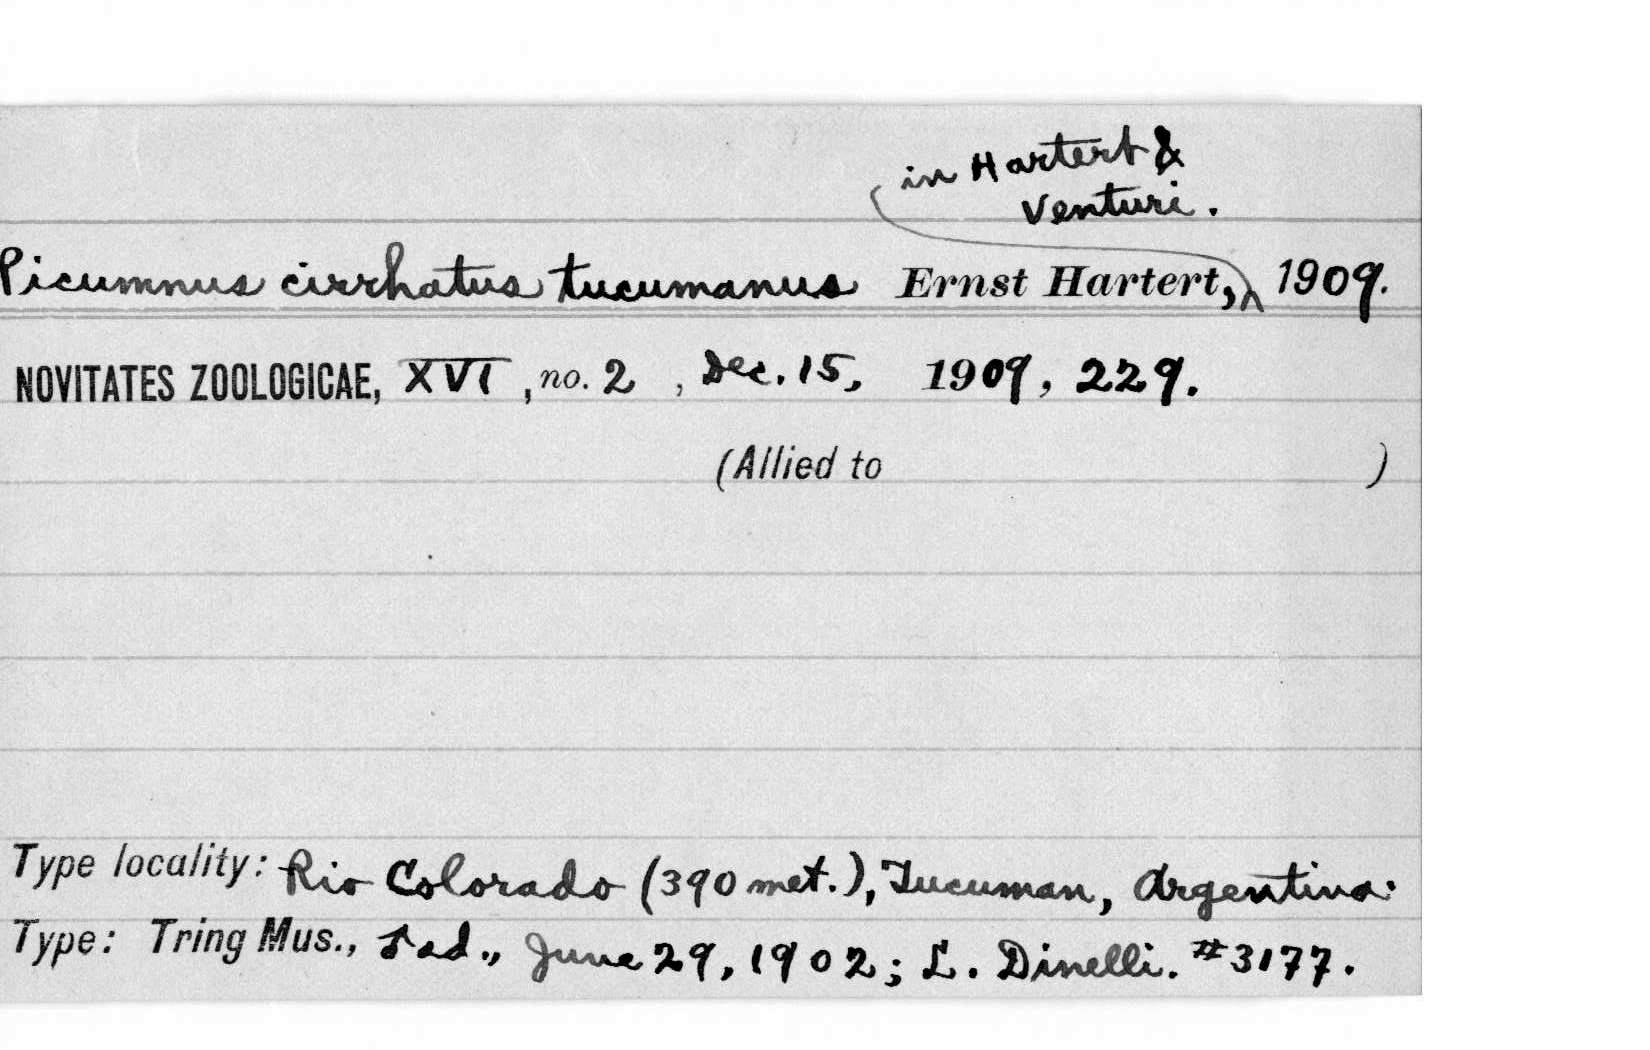 in Hartert &
Venturi.
Picumnus cirrhatus tucumanus Ernst Hartert, 1909.
NOVITATES ZOOLOGICAE, XVI, no. 2, Dec. 15, 1909, 229.
(Allied to )
Type locality: Rio Colorado (390 met.), Tucuman, Argentina.
Type: Tring Mus., ad., June 29, 1902; L. Dinelli. #3177.